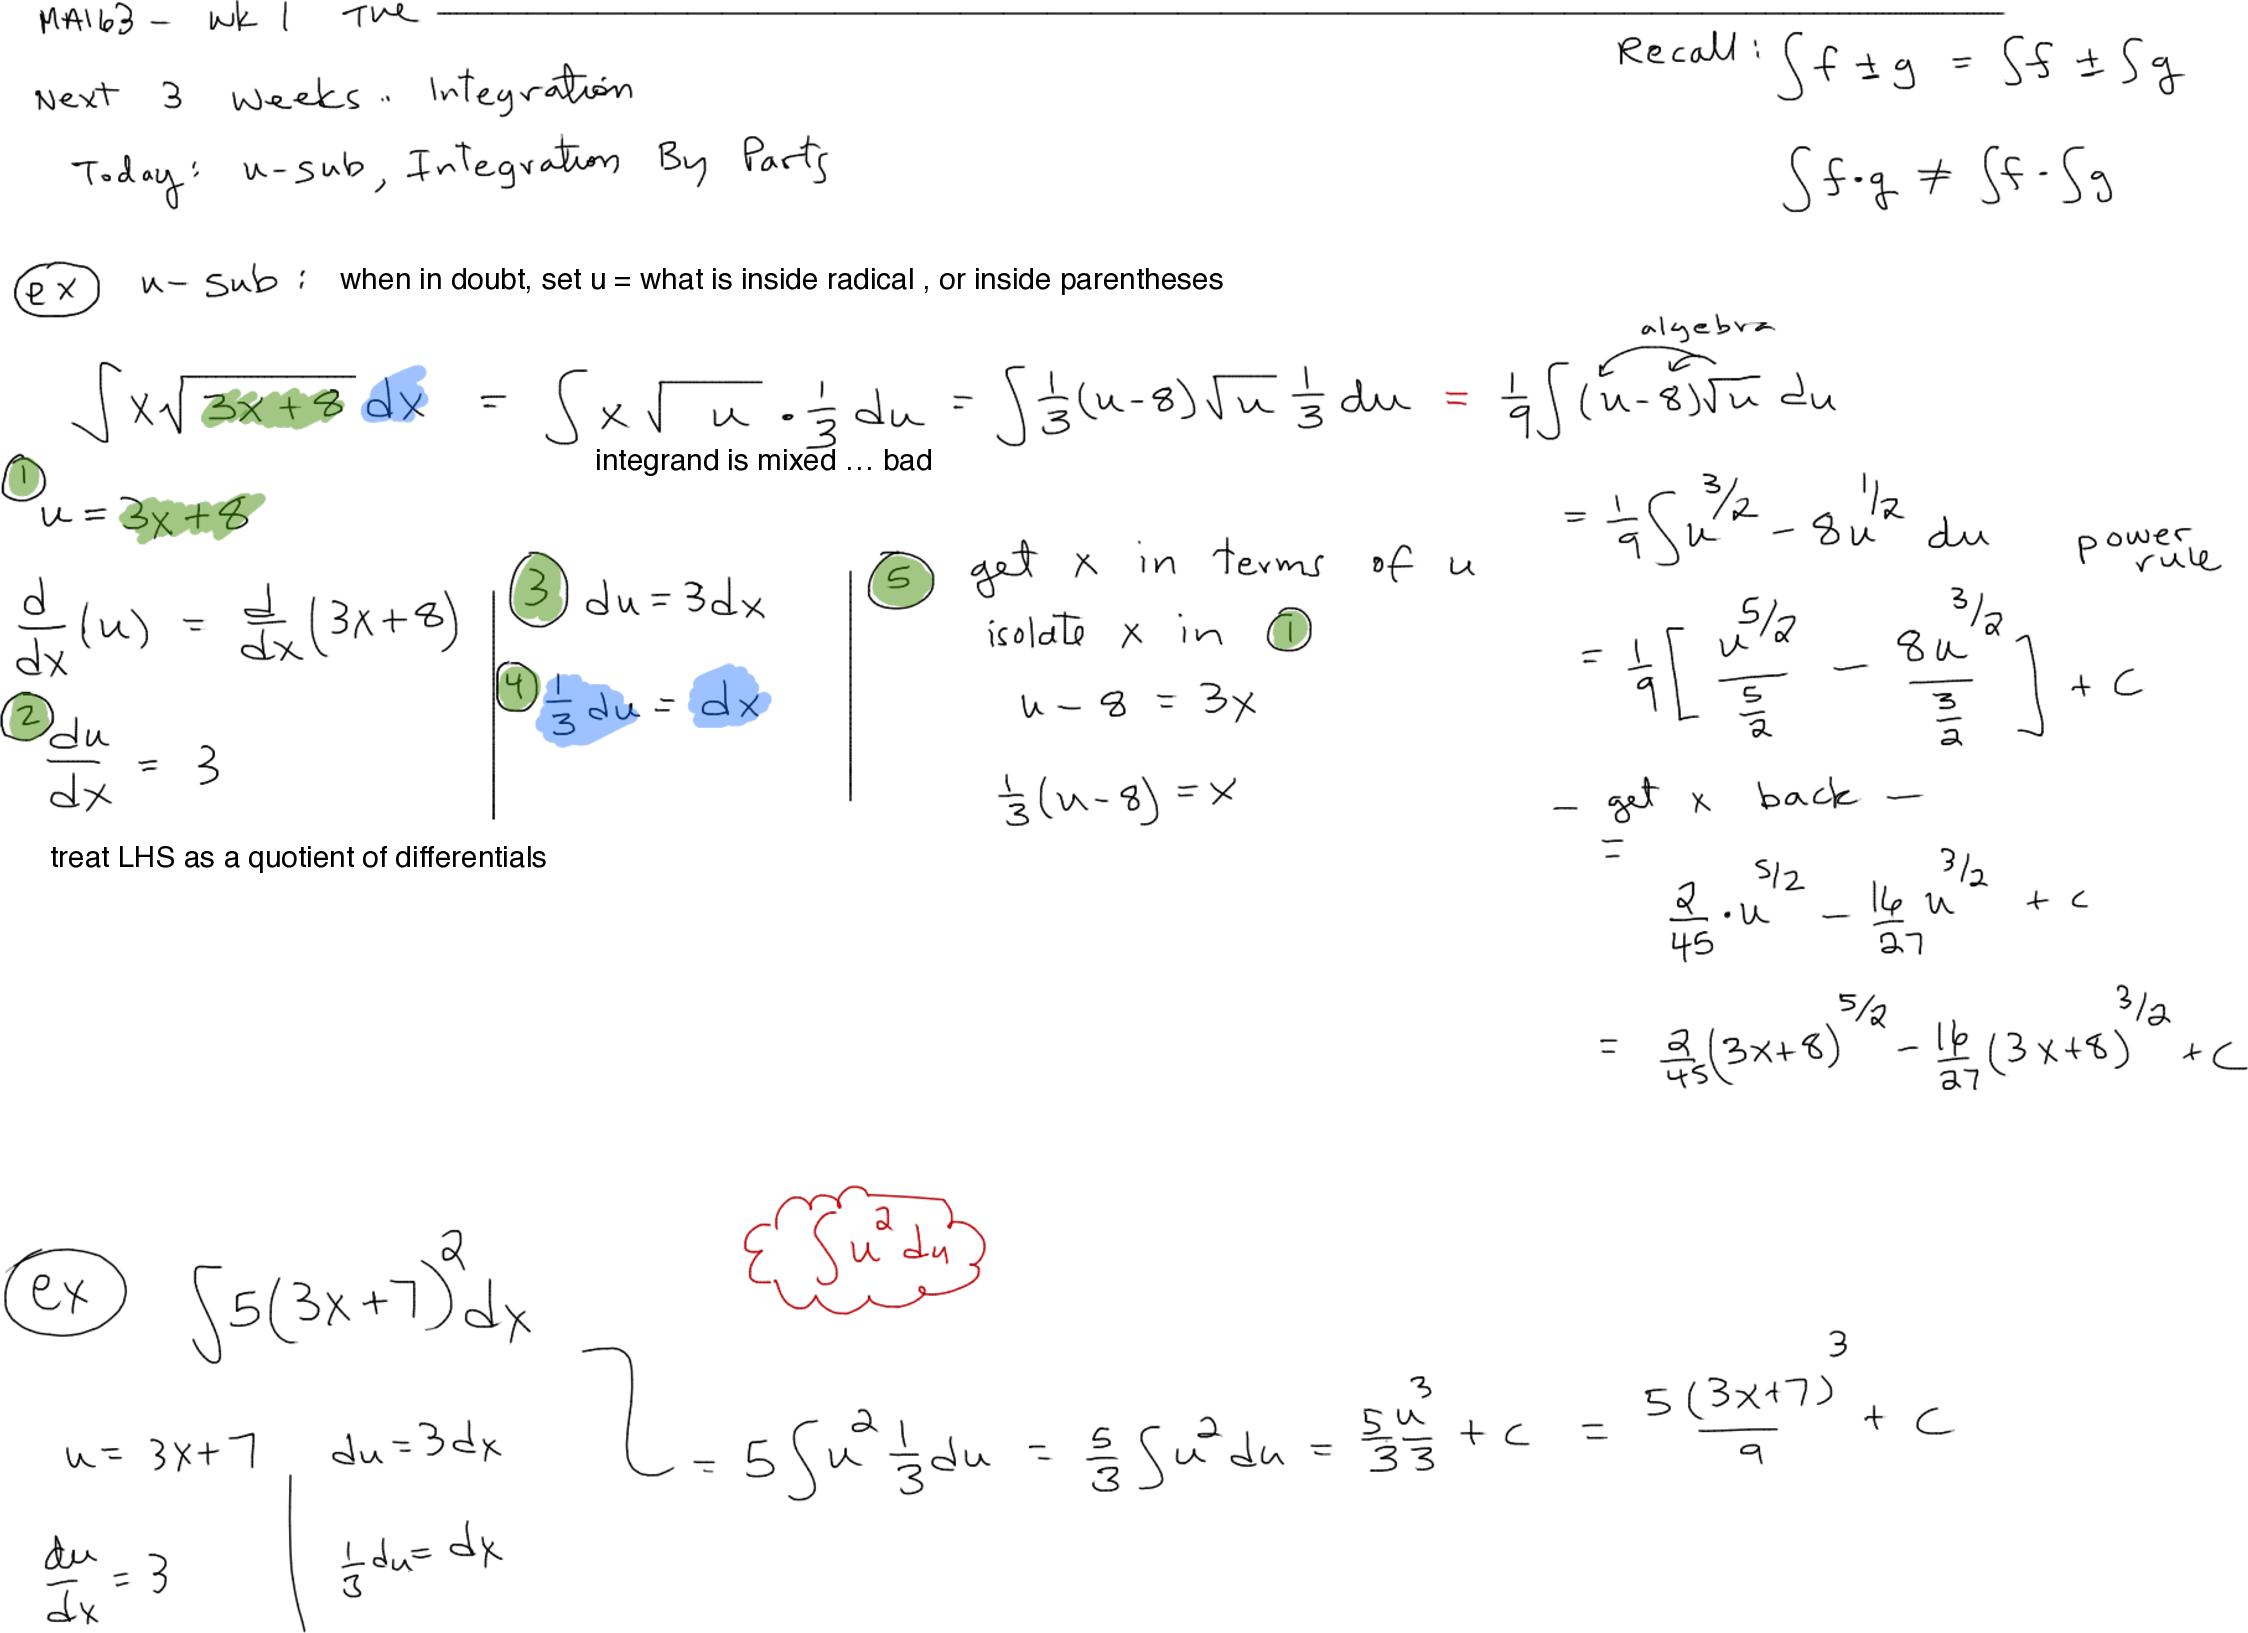 MA163 - Wk 1 Tue
Next 3 Weeks.. Integration
Today: u-sub, Integration By Parts
Recall: ∫f ± g = ∫f ± ∫g
∫f·g ≠ ∫f · ∫g
ex u-sub: when in doubt, set u = what is inside radical , or inside parentheses
algebra
∫x√(3x+8) dx = ∫x√u · 1/3 du = ∫1/3(u-8)√u 1/3 du = 1/9∫(u-8)√u du
integrand is mixed … bad
1 u = 3x+8
d/dx(u) = d/dx(3x+8)
2 du/dx = 3
treat LHS as a quotient of differentials
3 du = 3dx
4 1/3 du = dx
5 get x in terms of u
isolate x in 1
u - 8 = 3x
1/3(u-8) = x
= 1/9∫u^3/2 - 8u^1/2 du power rule
= 1/9[u^5/2/(5/2) - 8u^3/2/(3/2)] + c
- get x back -
=
2/45 · u^5/2 - 16/27 u^3/2 + c
= 2/45(3x+8)^5/2 - 16/27(3x+8)^3/2 + C
ex ∫5(3x+7)^2 dx
∫u^2 du
u = 3x+7
du/dx = 3
du = 3dx
1/3 du = dx
= 5∫u^2 1/3 du = 5/3∫u^2 du = 5/3 u^3/3 + c = 5(3x+7)^3/9 + C